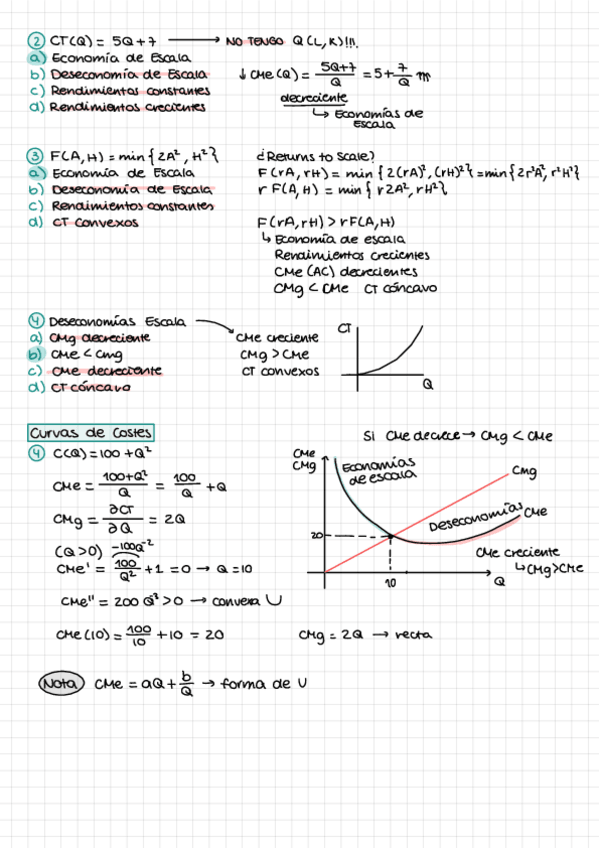 ② CT(Q) = 5Q+7 → NO TENGO Q(L,K)!!!.
a) Economía de Escala
b) Deseconomía de Escala
↓ CMe(Q) = (5Q+7)/Q = 5 + 7/Q
c) Rendimientos constantes
d) Rendimientos crecientes
decreciente
↳ Economías de Escala
③ F(A,H) = min{2A², H²}
¿Returns to Scale?
a) Economía de Escala
F(rA,rH) = min{2(rA)², (rH)²} = min{2r²A², r²H²}
b) Deseconomía de Escala
r F(A,H) = min{r2A², rH²}
c) Rendimientos constantes
d) CT convexos
F(rA,rH) > rF(A,H)
↳ Economía de escala
Rendimientos crecientes
CMe (AC) decrecientes
CMg < CMe CT cóncavo
④ Deseconomías Escala
a) CMg decreciente
CMe creciente
b) CMe < Cmg
CMg > CMe
c) CMe decreciente
CT convexos
d) CT cóncavo
CT
Q
Curvas de Costes
Si CMe decrece → CMg < CMe
④ C(Q) = 100 + Q²
CMe = (100+Q²)/Q = 100/Q + Q
CMg = ∂CT/∂Q = 2Q
(Q>0) -100Q⁻²
CMe' = 100/Q² + 1 = 0 → Q = 10
CMe'' = 200 Q⁻³ > 0 → convexa ∪
CMe(10) = 100/10 + 10 = 20
CMe
CMg
Economías de escala
Cmg
Deseconomías
CMe
20
CMe creciente
↳ CMg > CMe
10
Q
CMg = 2Q → recta
Nota CMe = aQ + b/Q → forma de U